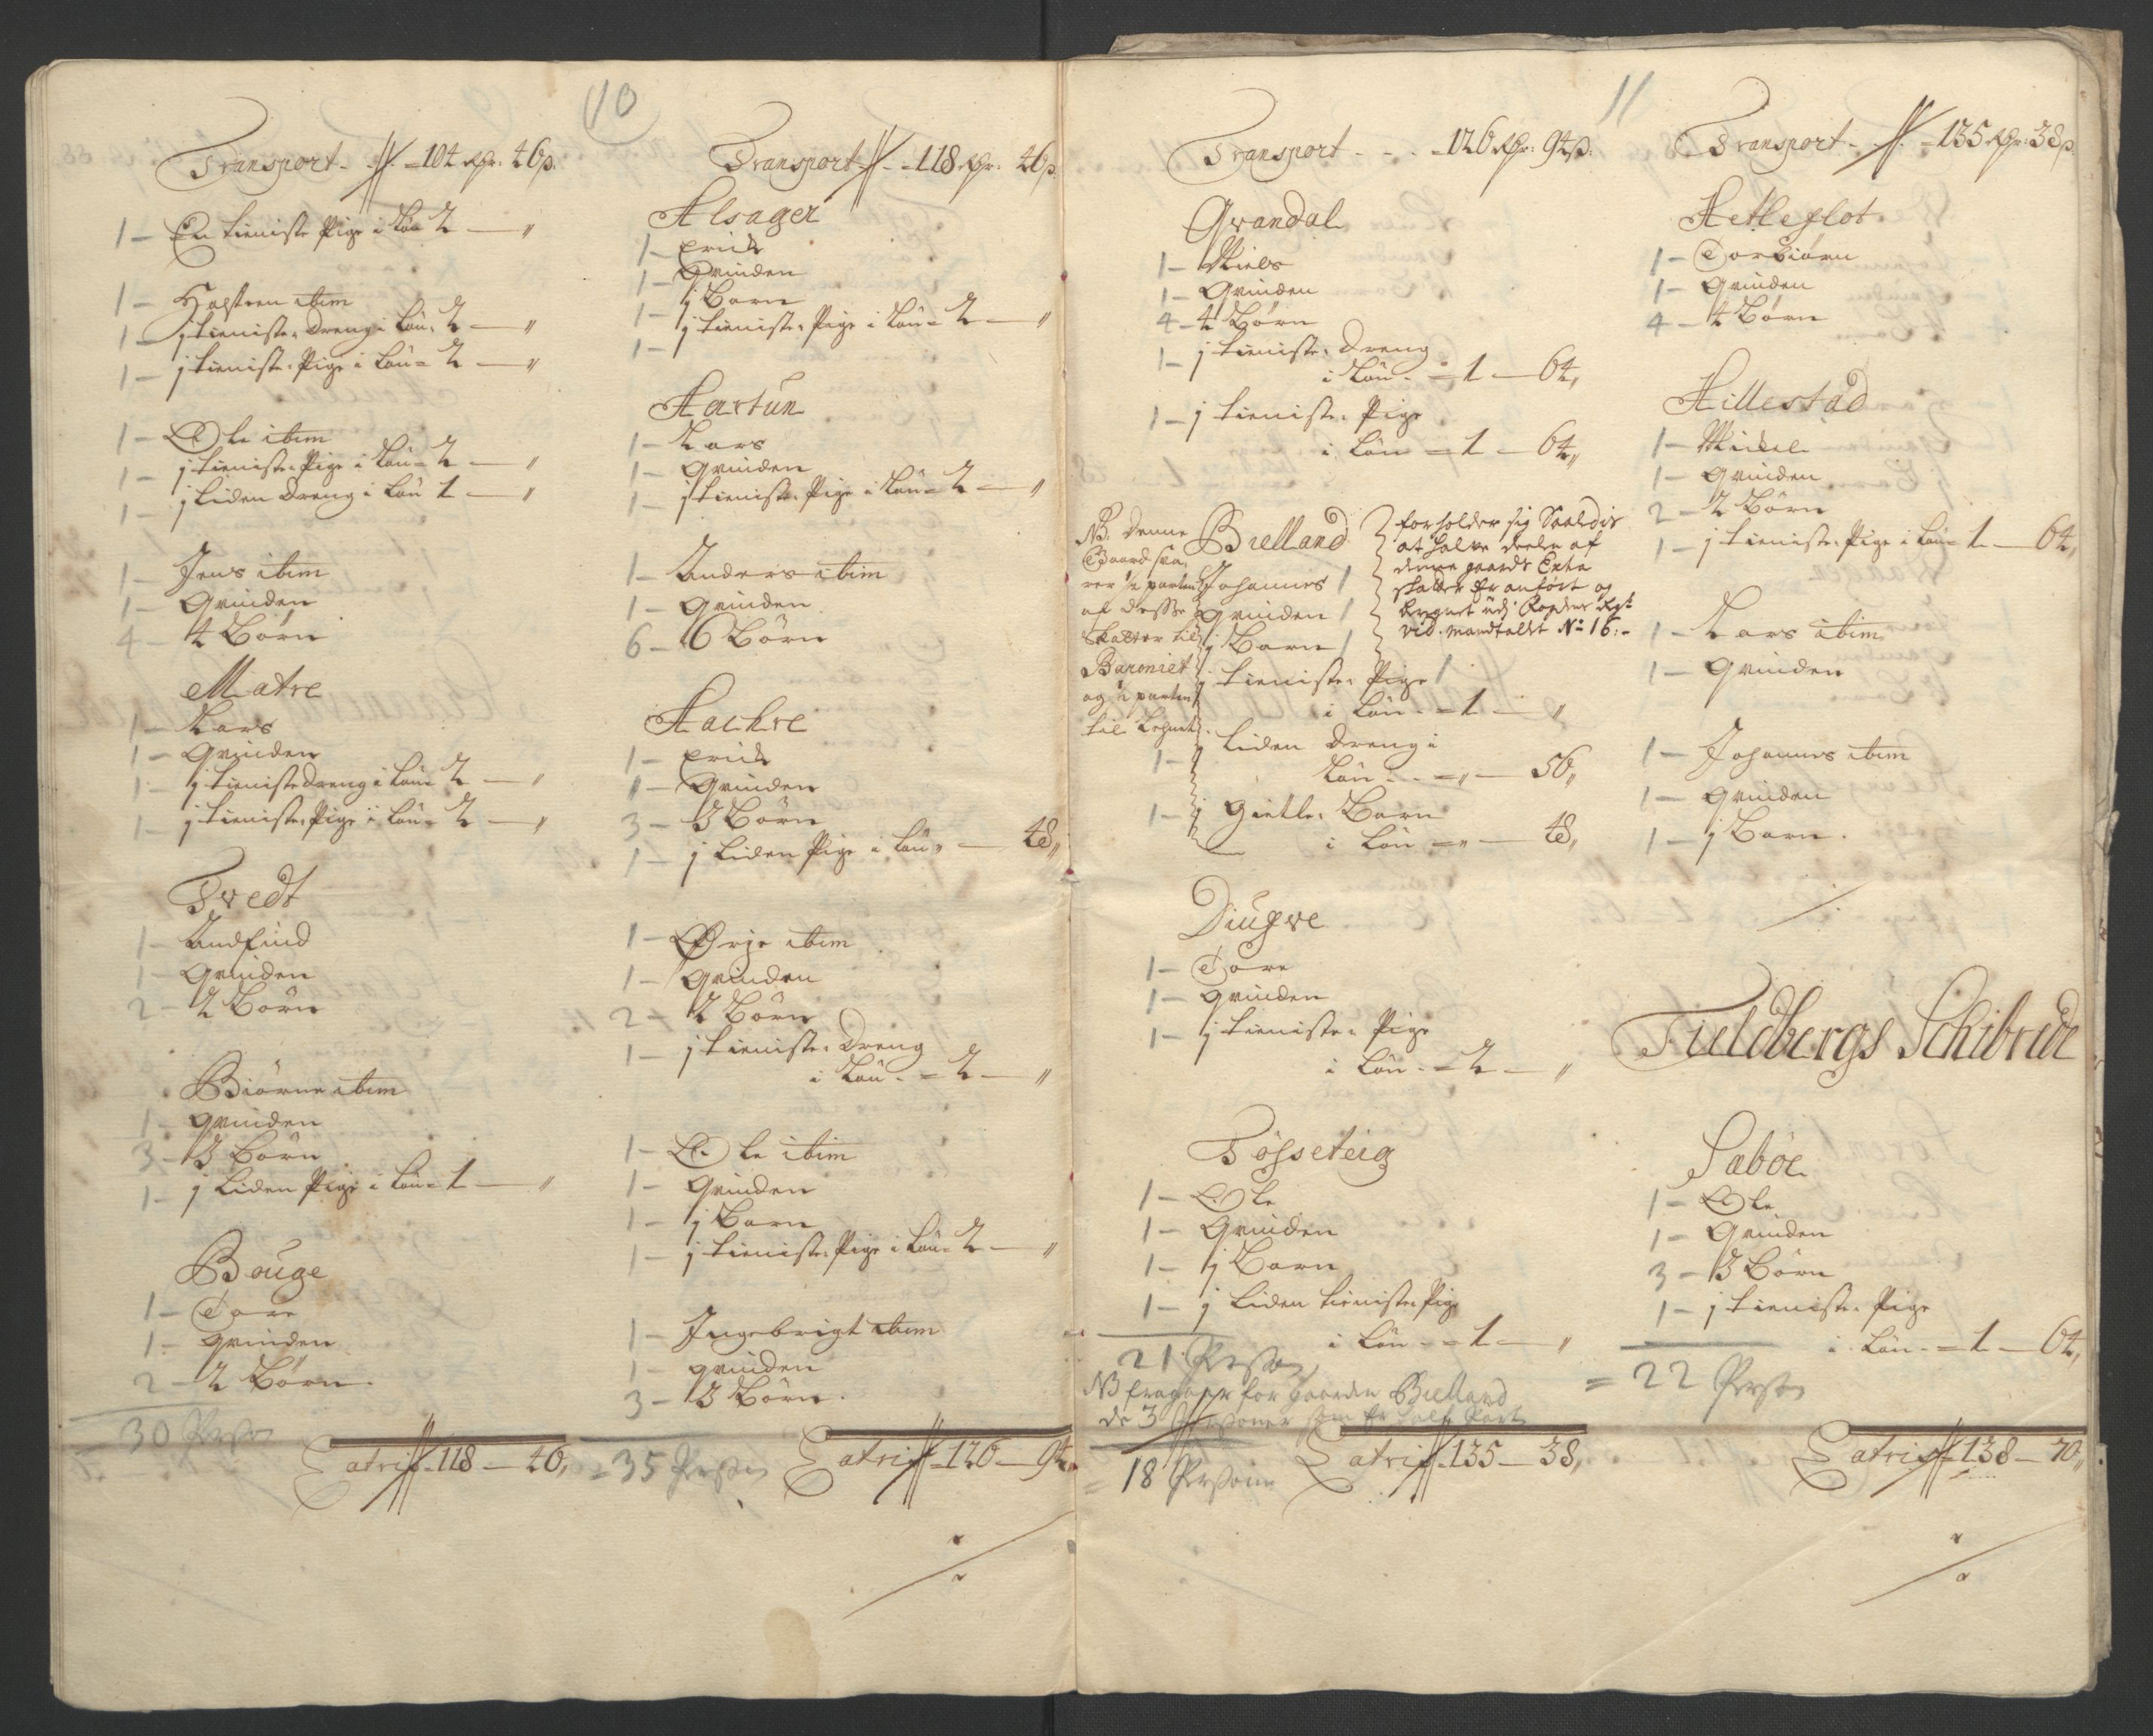 10
Transport - 104 Rdr: 46 ß.
1 - En tieniste Pige i Løn 2 - "
1 - Halsteen ibm
1 - j tieniste Dreng i Løn. 2 - "
1 - j tieniste Pige i Løn - 2 - "
1 - Ole ibm
1 - j tieniste Pige i Løn - 2 - "
1 - j liden Dreng i Løn 1 - "
1 - Jens ibm
1 - Qvinden
4 - 4 Børn
Matre
1 - Lars
1 - Qvinden
1 - j tieniste Dreng i Løn 2 - "
1 - j tieniste Pige i Løn - 2 - "
Tvedt
1 - Andfind
1 - Qvinden
2 - 2 Børn
Biørne ibm
1 - Qvinden
3 - 3 Børn
1 - j liden Pige i Løn - 1 - "
Bouge
1 - Tore
1 - Qvinden
2 - 2 Børn.
30 Perso
Latris 118 - 46,
Transport - 118 Rdr: 46 ß.
Alsager
1 - Erich
1 - Qvinden
1 - j Barn
1 - j tieniste Pige i Løn - 2 - "
Aartun
1 - Lars
1 - Qvinden
1 - j tieniste Pige i Løn - 2 - "
1 - Anders ibim
1 - Qvinden
6 - 6 Børn
Aachre
1 - Erich
1 - Qvinden
3 - 3 Børn
1 - j liden Pige i Løn " - 48,,
1 - Ørje ibm
1 - Qvinden
2 - 2 Børn
1 - j tieniste Dreng
i Løn - 2 - "
1 - Ole ibim
1 - Qvinden
1 - j Barn
1 - j tieniste Pige i Løn - 2 - "
1 - Ingebrigt ibm
1 - qvinden
3 - 3 Børn.
= 35 Person
Latris 126 - 94
11
Transport - - - 126 Rdr: 94 ß.
Qvandal
1 - Niels
1 - Qvinden
4 - 4 Børn
1 - j tieniste Dreng
i Løn - 1 - 64,,
1 - j tieniste Pige
i Løn - 1 - 64,,
NB. denne
Gaard sva,
rer ½ parten
af desse
skatter til
Baroniet
og ½ parten
til Lehnet
Bielland
Johannes /
Qvinden /
j Barn /
j tieniste Pige /
i Løn - 1 - "
1 - j liden Dreng i
Løn - " - 56,,
1 - j Giætle Barn
i Løn - " - 48,,
forholder sig Saaledis
at halve deelen af
denne gaards Exta
skatter er anført og
Beregnet udj Regst
vid mandtallet No 16:-
Diupve
1 - Tore
1 - qvinden
1 - j tieniste Pige
i Løn - 2 - "
Tösseteig
1 - Ole
1 - Qvinden
1 - j Barn
1 - j liden tieniste Pige
i Løn - 1 - "
21 Person
NB fragaar for gaarden Bielland
de 3 Personer som er halfe Part
= 18 Persone
Latris 135 - 38,
Transport - 135 Rdr: 38 ß.
Aetleflot
1 - Torbiørn
1 - Qvinden
4 - 4 Børn
Hillestad
1 - Mickel
1 - Qvinden
2 - 2 Børn
1 - j tieniste Pige i Løn - 1 - 64,
1 - Lars ibim
1 - Qvinden
1 - Johannes ibm
1 - Qvinden
1 - j Barn.
Fieldbergs Schibrede
Sæbøe
1 - Ole
1 - Qvinden
3 - 3 Børn
1 - j tieniste Pige
i Løn - 1 - 64,
= 22 Person
Latris 138 - 70,,